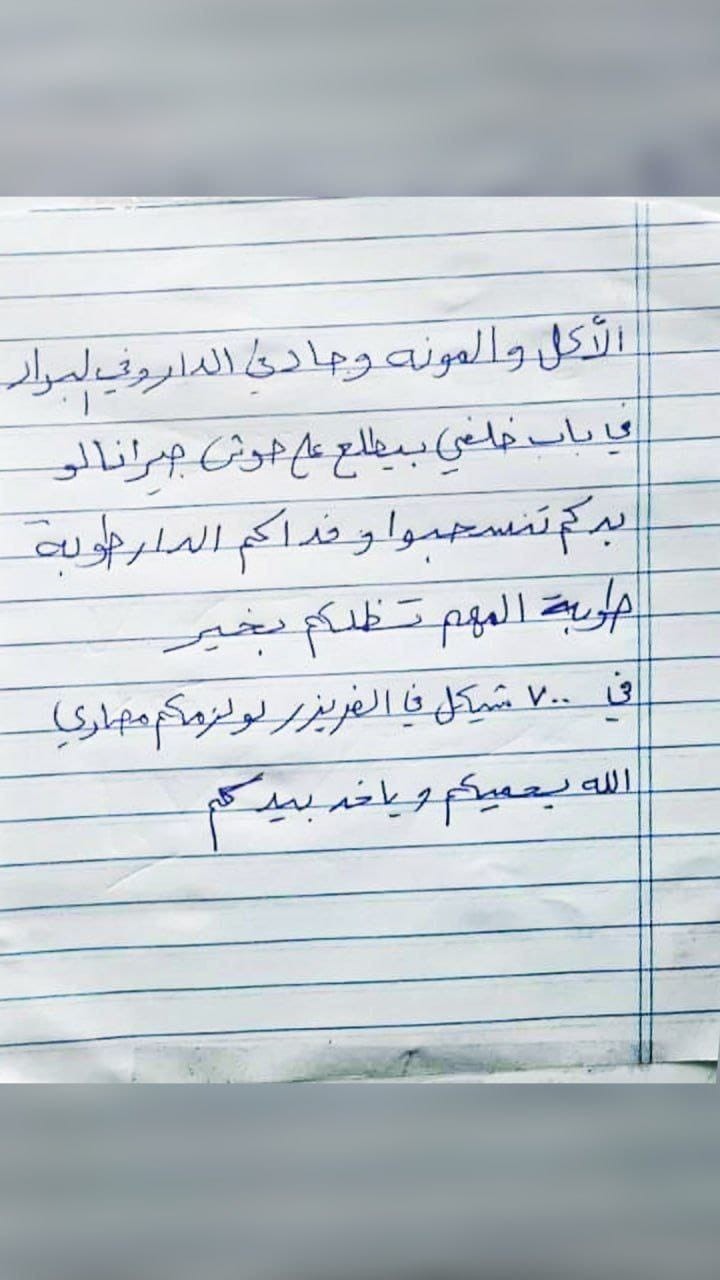 الأكل والمونه وحادي الدار وفي البراد
في باب خلفي بيطلع على حوش جيرانا لو
بدكم تنسحبوا وفداكم الدار طوبة
طوبة المهم تظلكم بخير
في ٧٠٠ شيكل في الفريزر لو لزمكم مصاري
الله يحميكم وياخد بيدكم